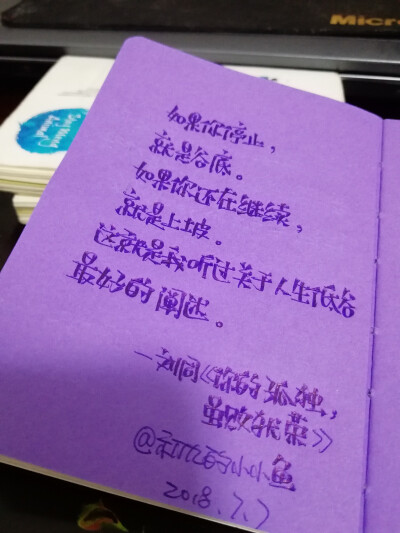 Micro
如果你停止，
就是谷底。
如果你还在继续，
就是上坡。
这就是我听过关于人生低谷
最好的阐述。
—刘同《你的孤独，
虽败犹荣》
的小小鱼
2018.7.7